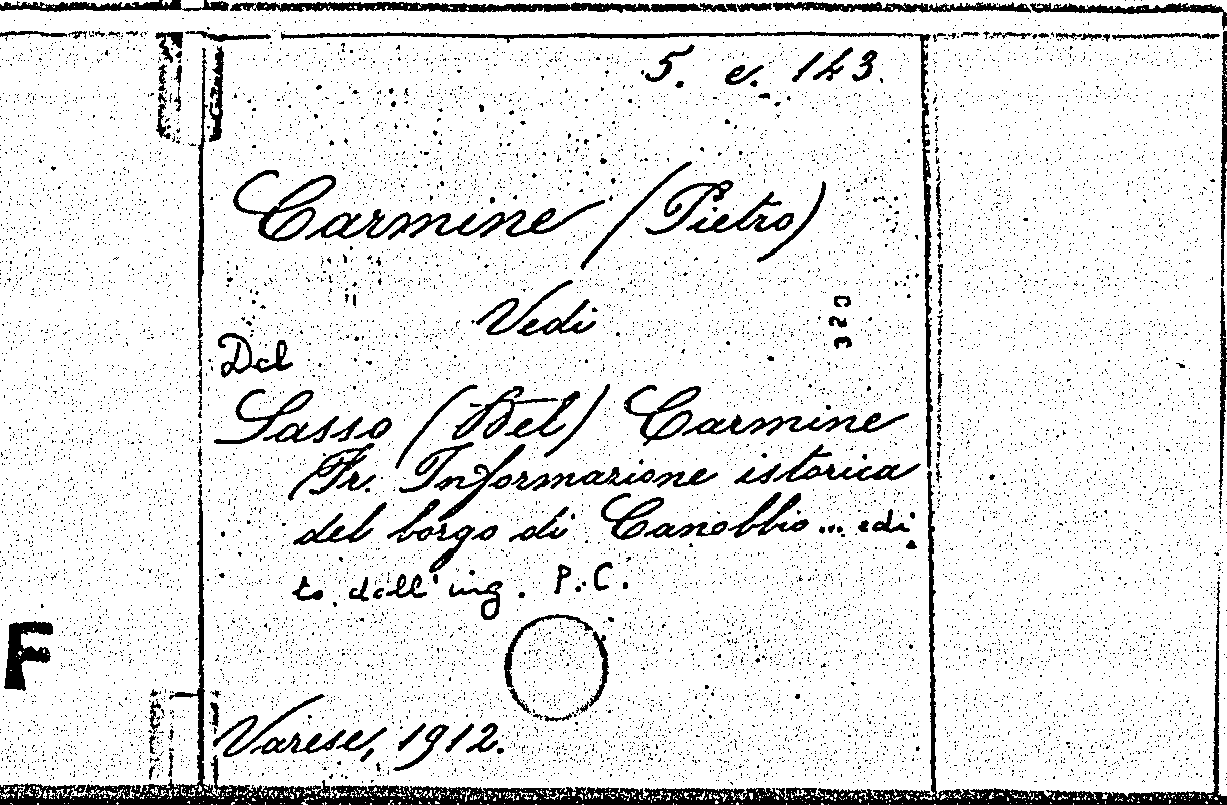 5. e. 143.
Carmine (Pietro)
Vedi
320
Del
Sasso (Del) Carmine
Fr. Informazione istorica
del borgo di Canobbio ... edi
to dall'ing. P.C.
F
Varese, 1912.